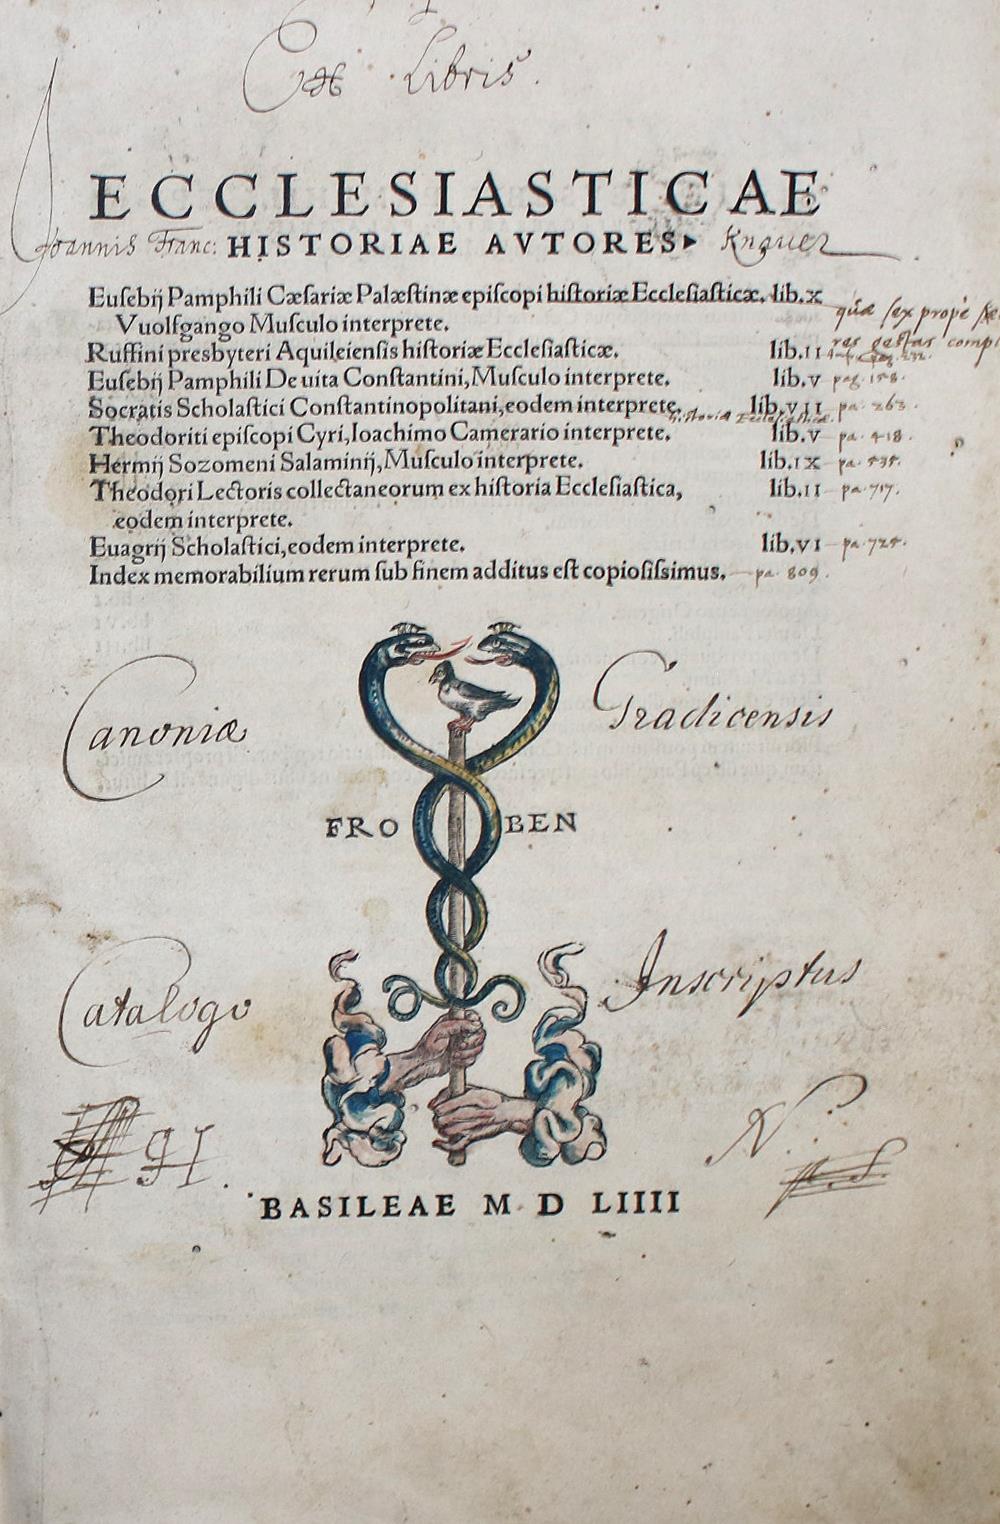 Ex Libris.
ECCLESIASTICAE
Joannis Franc: HISTORIAE AVTORES▸ Knauer
Euſebij Pamphili Cæſariæ Palæſtinæ epiſcopi hiſtoriæ Eccleſiaſticæ. lib.X quæ ſex propè
Vuolfgango Muſculo interprete.
Ruffini presbyteri Aquileienſis hiſtoriæ Eccleſiaſticæ. lib.II res geſtas
Euſebij Pamphili De uita Conſtantini, Muſculo interprete. lib.V pag. 158.
Socratis Scholaſtici Conſtantinopolitani, eodem interprete. lib.VII pa. 263.
historiæ Ecclesiasticæ.
Theodoriti epiſcopi Cyri, Ioachimo Camerario interprete. lib.V pa. 418.
Hermij Sozomeni Salaminij, Muſculo interprete. lib.IX pa. 535.
Theodori Lectoris collectaneorum ex hiſtoria Eccleſiaſtica, lib.II pa. 717.
eodem interprete.
Euagrij Scholaſtici, eodem interprete. lib.VI pa. 725.
Index memorabilium rerum ſub finem additus eſt copioſiſsimus. pa. 809.
Canoniæ Gradicensis
FRO BEN
Catalogo Inscriptus
91. N:
BASILEAE M D LIIII